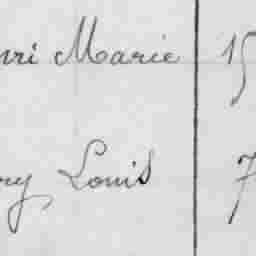 nri Marie 15
ory Louis 7